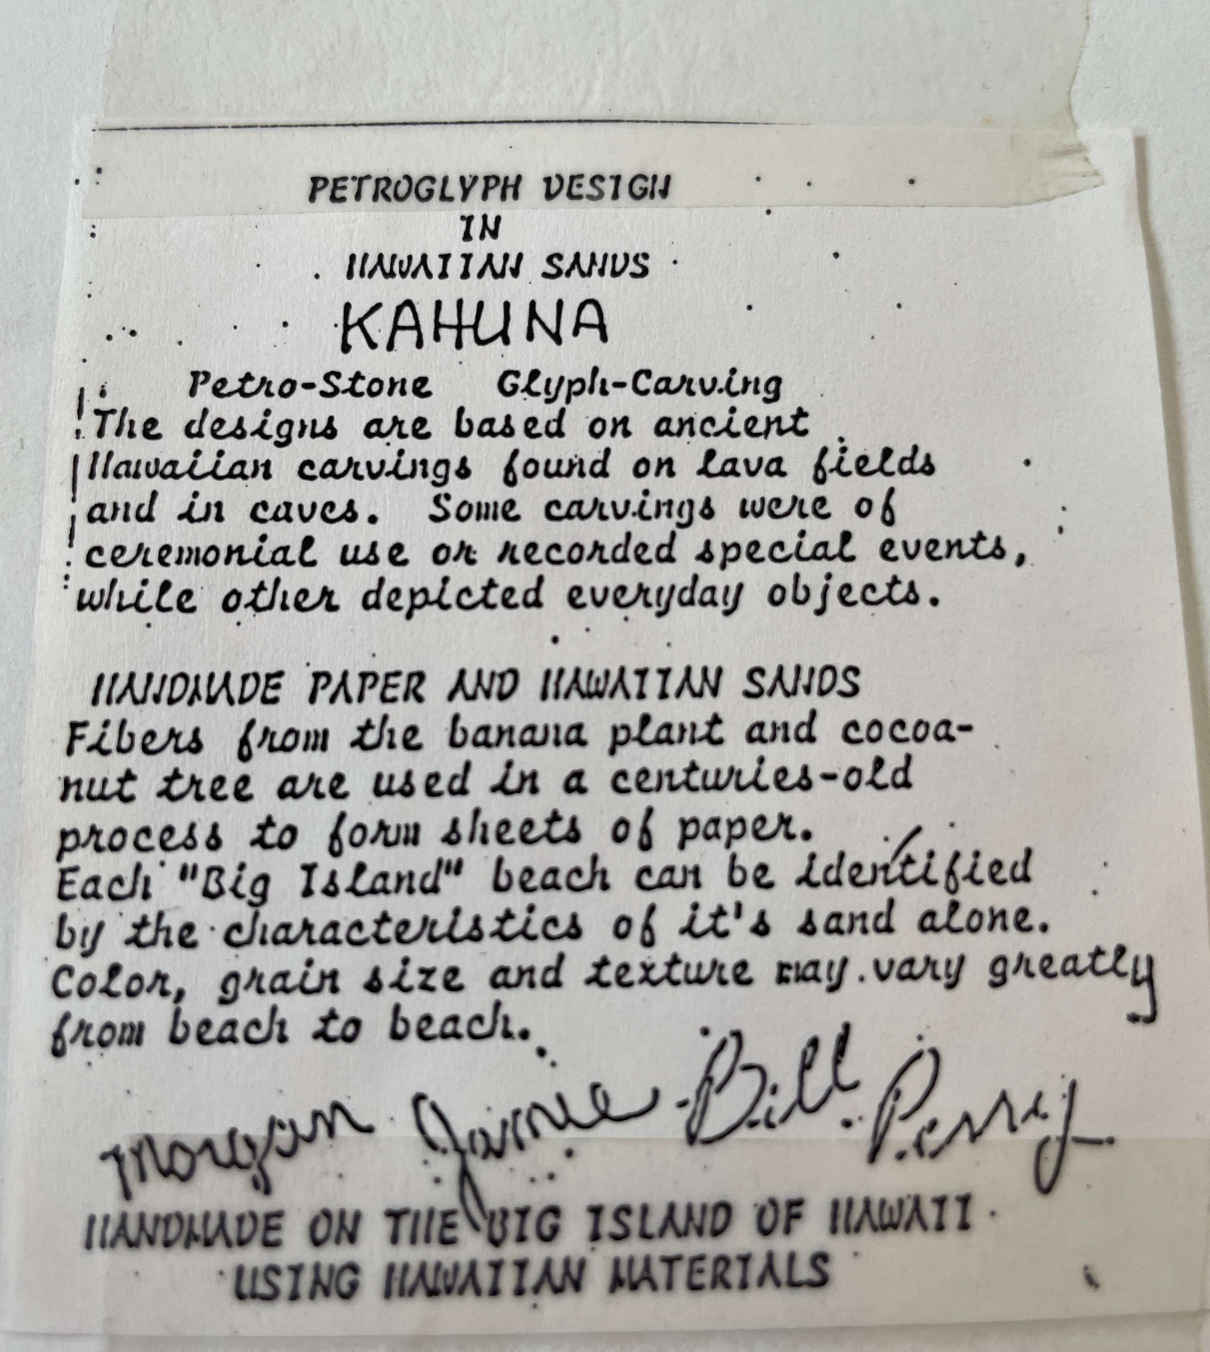 PETROGLYPH DESIGN
IN
HAWAIIAN SANDS
KAHUNA
Petro-Stone Glyph-Carving
The designs are based on ancient
Hawaiian carvings found on lava fields
and in caves. Some carvings were of
ceremonial use or recorded special events,
while other depicted everyday objects.
HANDMADE PAPER AND HAWAIIAN SANDS
Fibers from the banana plant and cocoa-
nut tree are used in a centuries-old
process to form sheets of paper.
Each "Big Island" beach can be identified
by the characteristics of it's sand alone.
Color, grain size and texture may vary greatly
from beach to beach.
Morgan Jaimie Bill Perry
HANDMADE ON THE BIG ISLAND OF HAWAII
USING HAWAIIAN MATERIALS